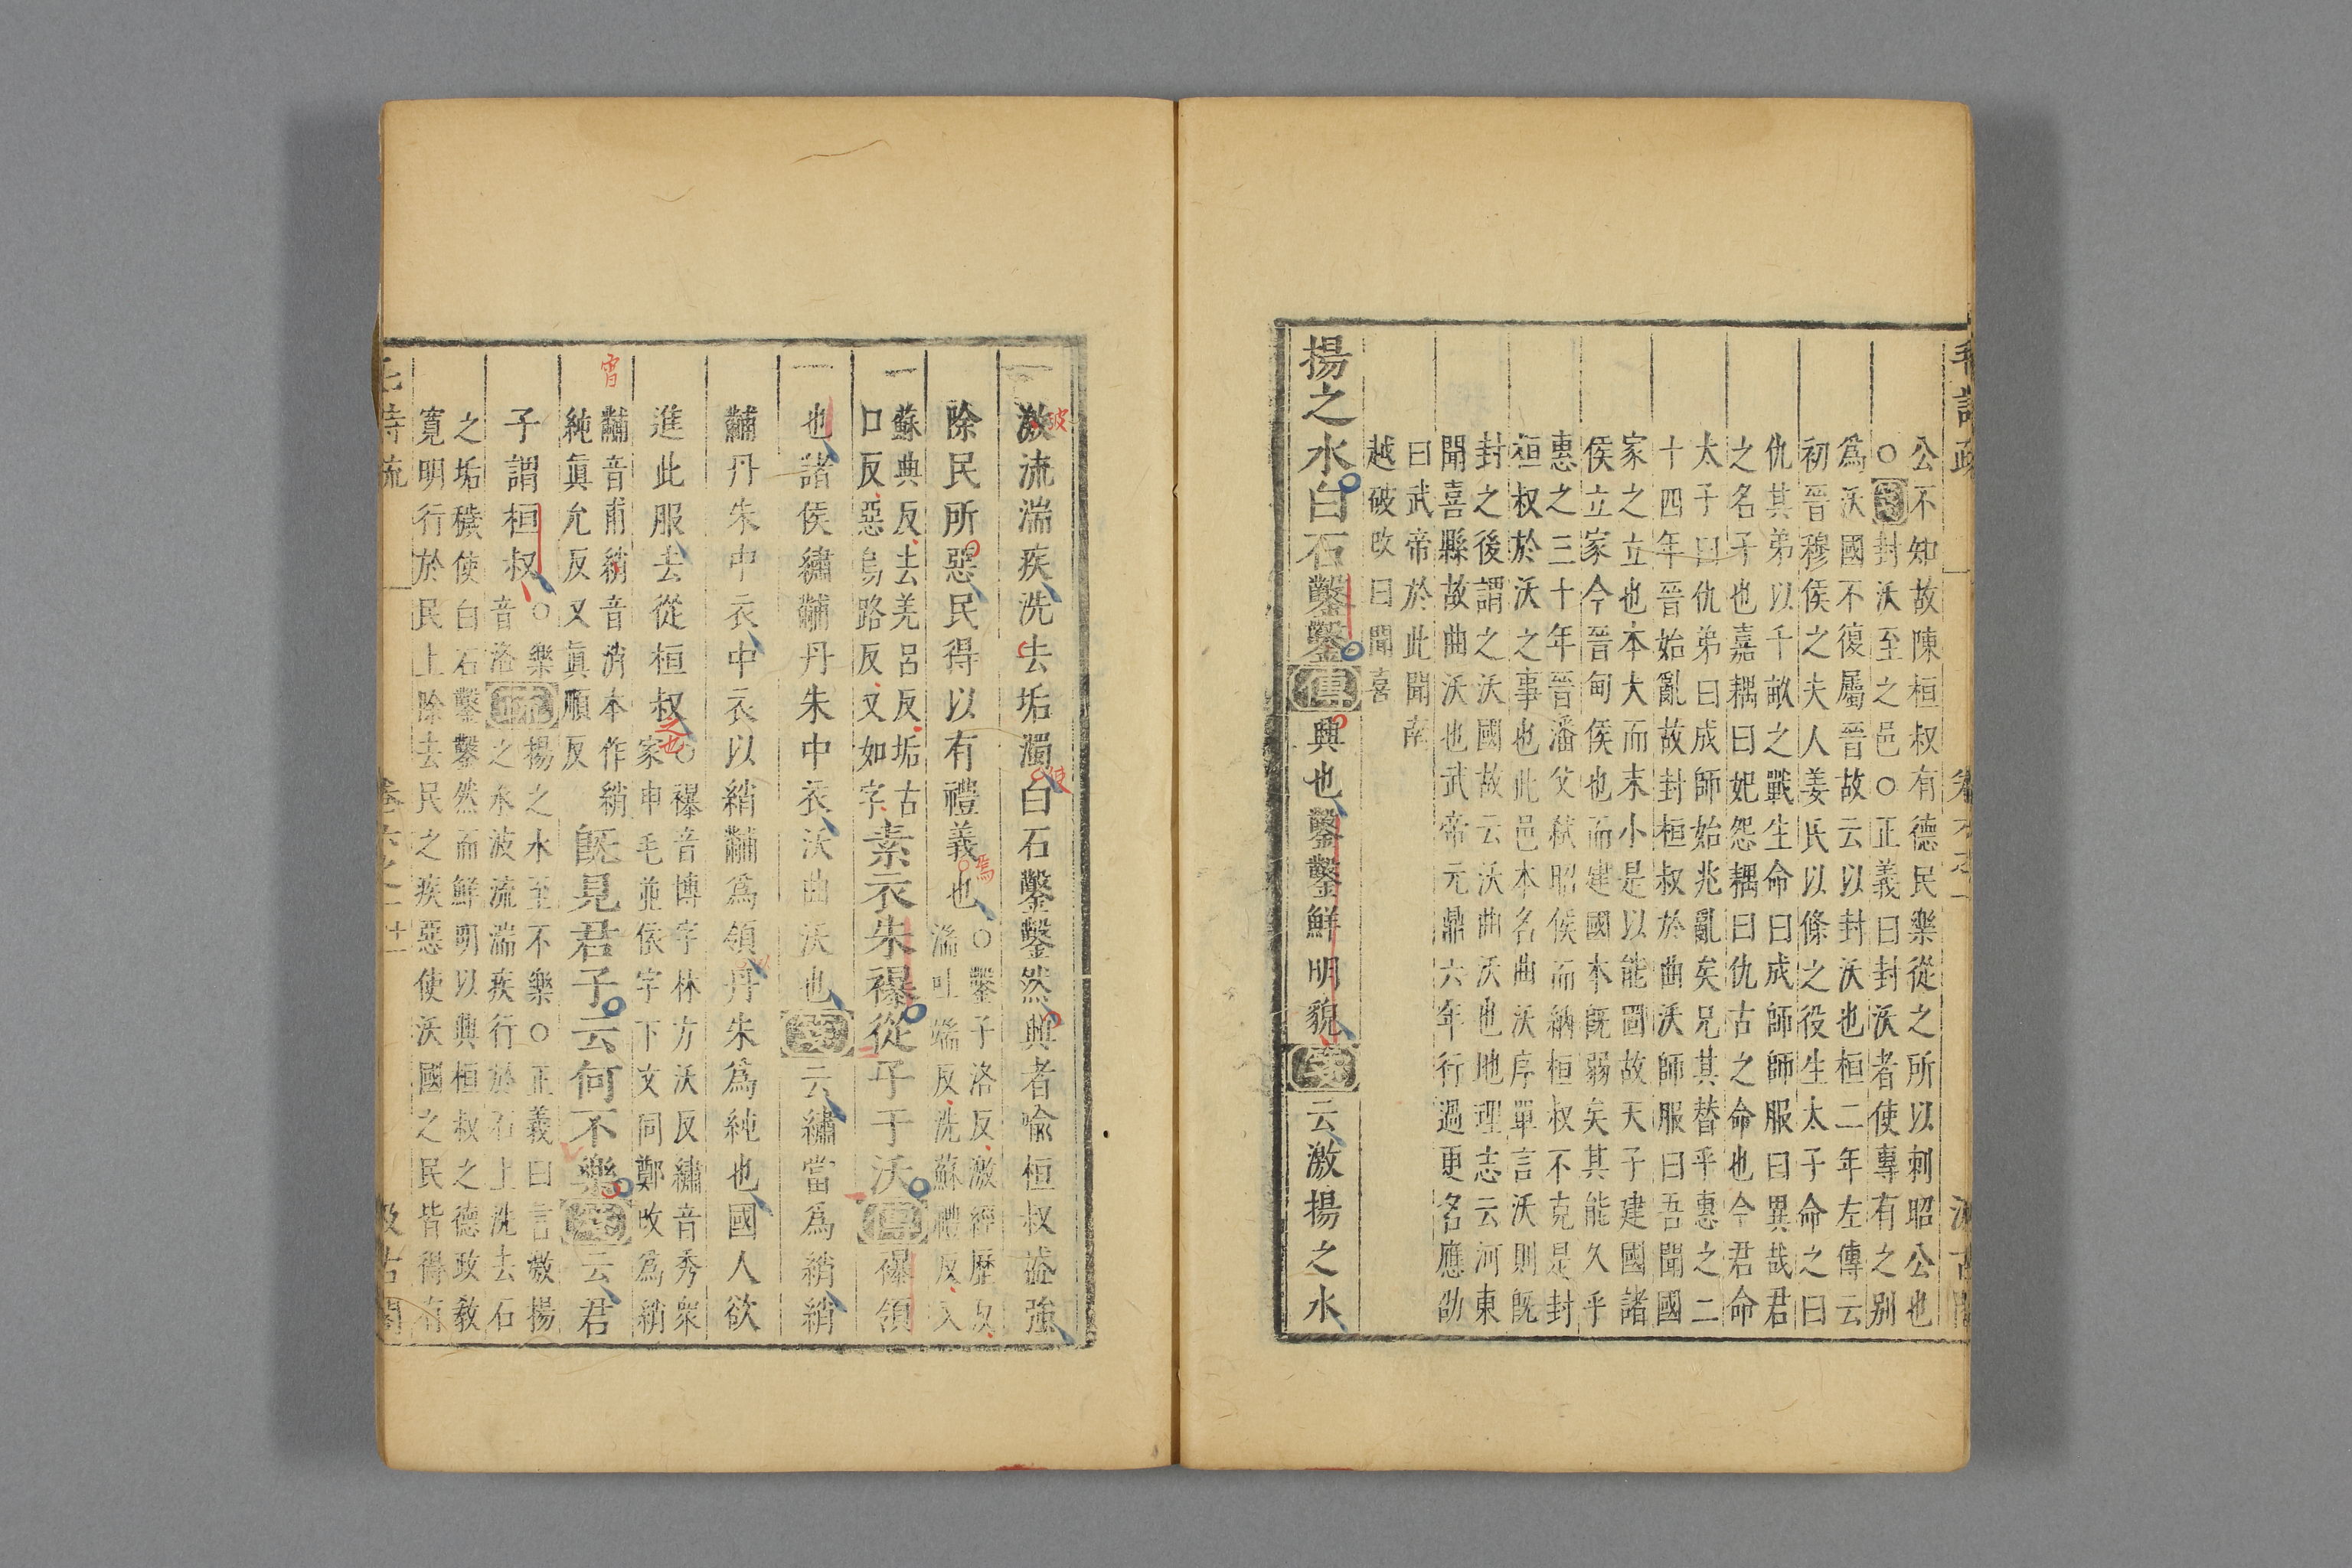 公不知故陳桓叔有德民樂從之所以刺昭公也
○疏封沃至之邑○正義曰封沃者使專有之别
爲沃國不復屬晉故云以封沃也桓二年左傳云
初晉穆侯之夫人姜氏以條之役生太子命之曰
仇其弟以千畝之戰生命曰成師師服曰異哉君
之名子也嘉耦曰妃怨耦曰仇古之命也今君命
太子曰仇弟曰成師始兆亂矣兄其替乎惠之二
十四年晉始亂故封桓叔於曲沃師服曰吾聞國
家之立也本大而末小是以能固故天子建國諸
侯立家今晉甸侯也而建國本既弱矣其能久乎
惠之三十年晉潘父弑昭侯而納桓叔不克是封
桓叔於沃之事也此邑本名曲沃序單言沃則既
封之後謂之沃國故云沃曲沃也地理志云河東
聞喜縣故曲沃也武帝元鼎六年行過更名應劭
曰武帝於此聞南
越破改曰聞喜
揚之水白石鑿鑿傳興也鑿鑿鮮明貌箋云激揚之水
激流湍疾洗去垢濁白石鑿鑿然興者喻桓叔盛強
除民所惡民得以有禮義也○鑿子洛反激經歷反
湍吐端反洗蘇禮反又
蘇典反去羌呂反垢古
口反惡烏路反又如字素衣朱襮從子于沃傳襮領
也諸侯繡黼丹朱中衣沃曲沃也箋云繡當爲綃綃
黼丹朱中衣中衣以綃黼爲領丹朱爲純也國人欲
進此服去從桓叔○襮音博字林方沃反繡音秀衆
家申毛並依字下文同鄭改爲綃
黼音甫綃音消本作綃
純眞允反又眞順反既見君子云何不樂箋云君
子謂桓叔○樂音洛疏揚之水至不樂○正義曰言激揚
之水波流湍疾行於石上洗去石
之垢穢使白石鑿鑿然而鮮明以興桓叔之德政教
寛明行於民上除去民之疾惡使沃國之民皆得有